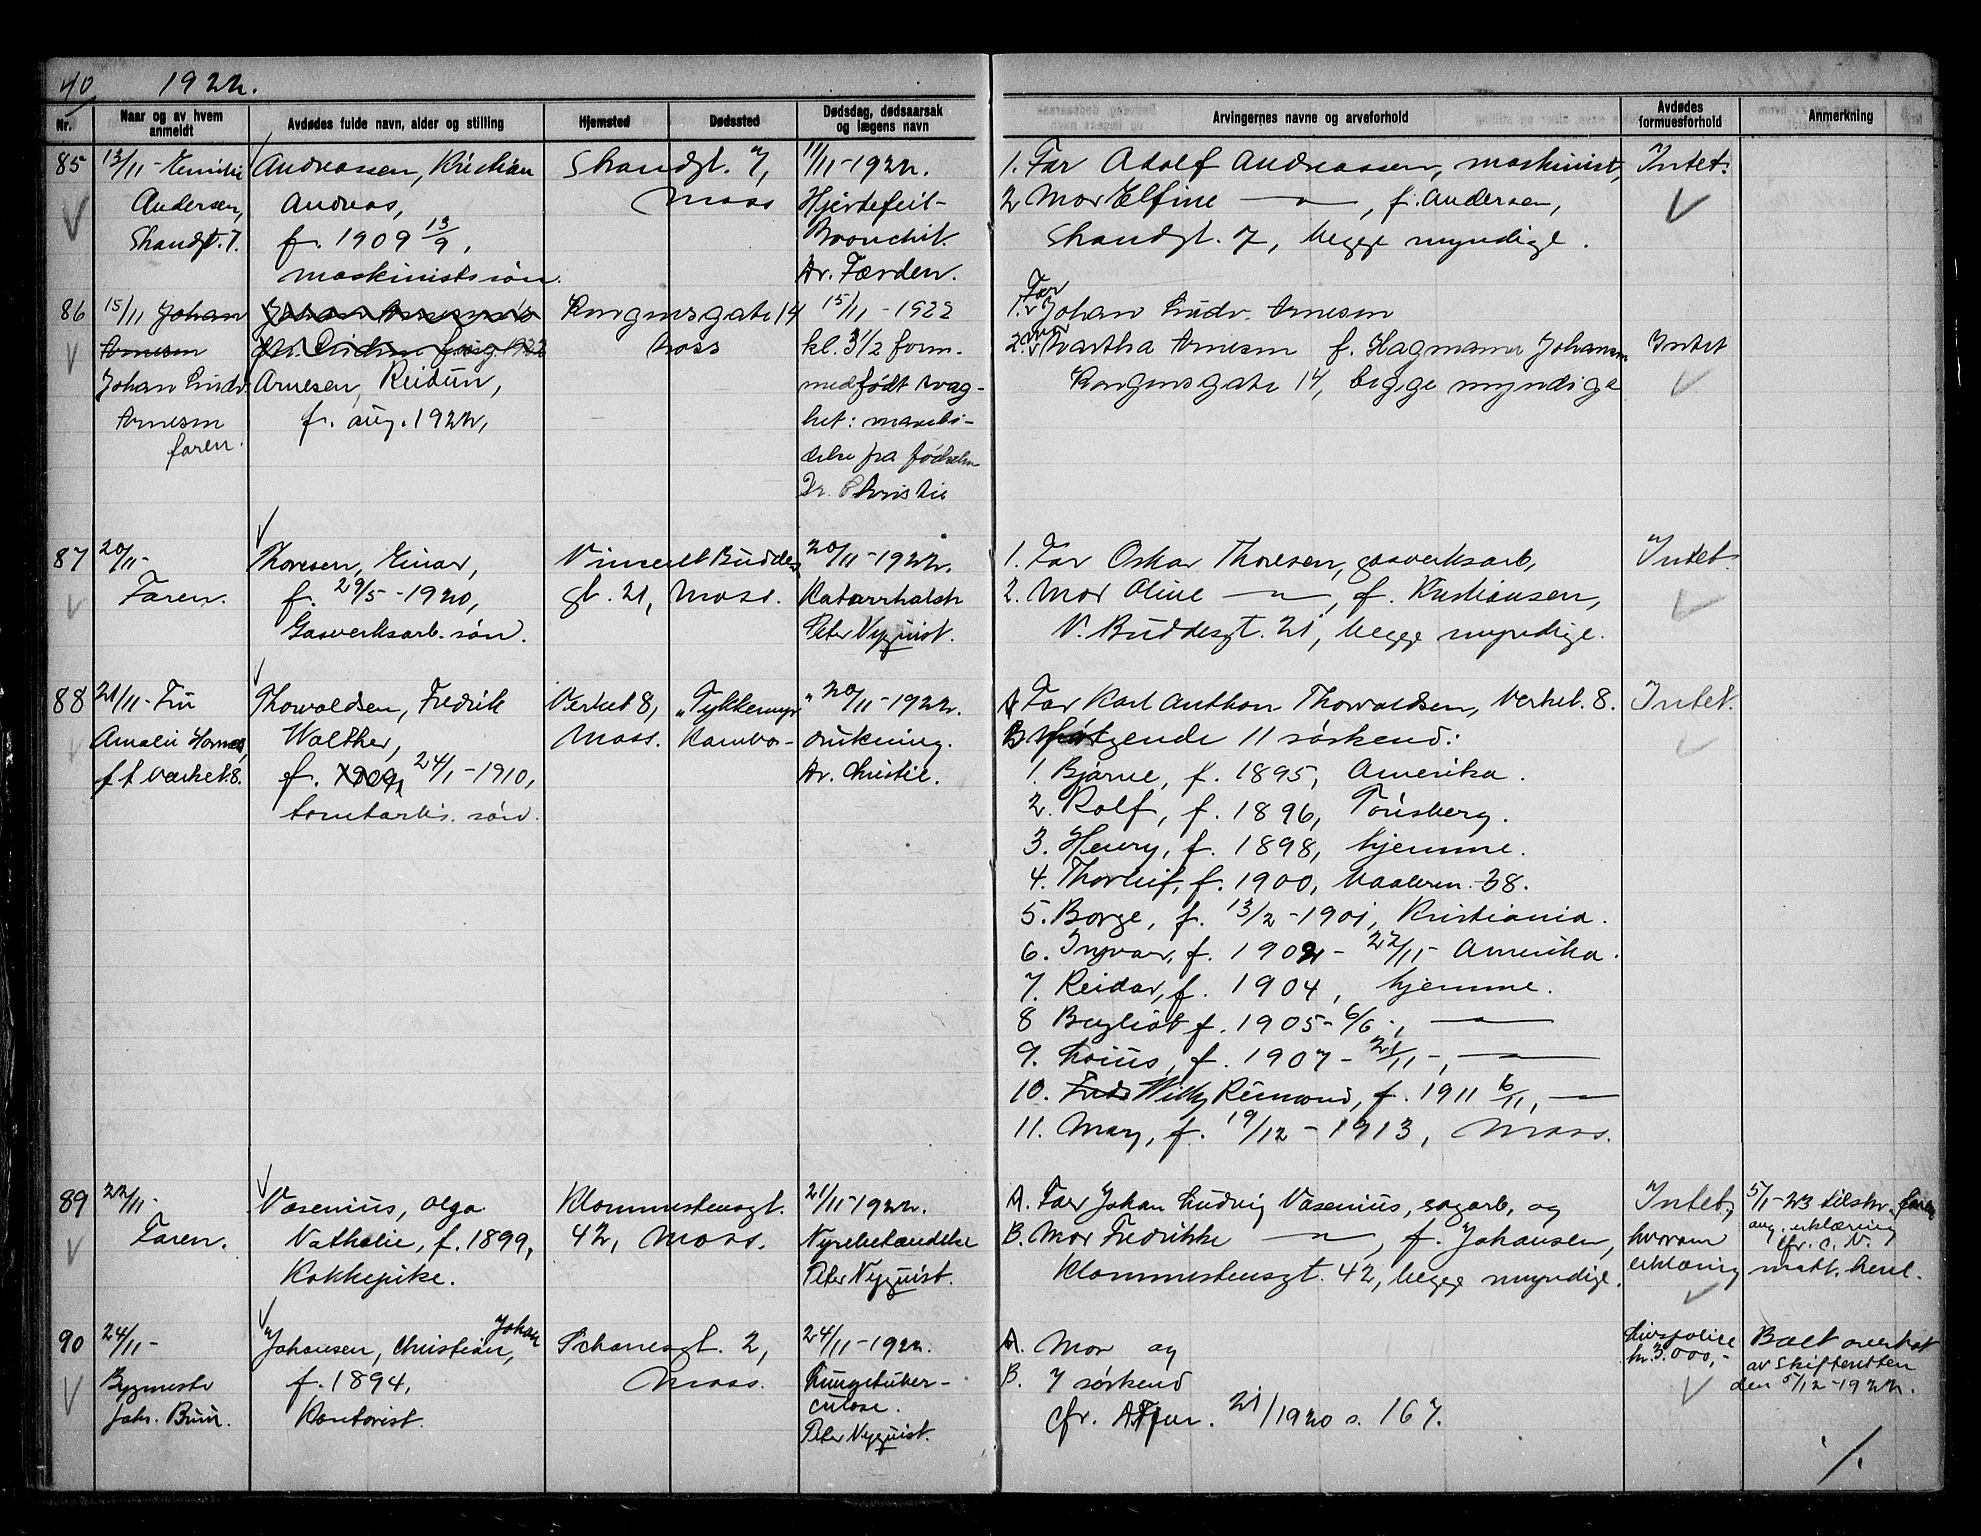 40 1922.
Nr.
Naar og av hvem anmeldt
Avdødes fulde navn, alder og stilling
Hjemsted
Dødssted
Dødsdag, dødsaarsak og lægens navn
Arvingernes navne og arveforhold
Avdødes formuesforhold
Anmerkning
85
13/11 - Emilie
Andersen,
Strandgt. 7.
Andreassen, Kristian
Andreas,
f. 1909 13/9,
maskinistsøn.
Strandgt. 7,
Moss
11/11 - 1922.
Hjertefeil -
Bronchit.
Dr. Færden.
1. Far Adolf Andreassen, maskinist,
2 Mor Elfine — " —, f. Andersen,
Strandgt. 7, begge myndige.
Intet.
86
15/11 Johan
Arnesen
Johan Ludv.
Arnesen
faren.
Arnesen, Reidun,
f. aug. 1922,
Kongensgate 14
Moss
15/11 - 1922
kl. 3 1/2 form.
medfødt svag-
het:
fra fødselen
Dr. Christie
1. Far Johan Ludv. Arnesen
2. Mor Martha Arnesen f. Hagmann Johansen
Kongensgate 14, begge myndige
Intet
87
20/11 -
Faren.
Thoresen, Einar,
f. 29/5 - 1920,
Gasverksarb. søn.
Vincent Buddes
gt. 21, Moss.
20/11 - 1922.
Katarrhalsk
Peter Nyquist.
1. Far Oskar Thoresen, gasverksarb,
2. Mor Oline — " —, f. Kristiansen,
V. Buddesgt. 21, begge myndige.
Intet.
88
21/11 - Fru
Amalie
f f Verket 8.
Thowaldsen, Fredrik
Walther,
f. 1909, 24/1 - 1910,
tomtarb. søn.
Verket 8,
Moss.
"Tykkemyr"
Kambo -
20/11 - 1922.
drukning.
Dr. Christie.
A Far Karl Anthon Thowaldsen, Verket. 8.
B følgende 11 søskend:
1. Bjarne, f. 1895, Amerika.
2. Rolf, f. 1896, Tønsberg.
3. Henry, f. 1898, hjemme.
4. Thorleif, f. 1900, Vaaleren. 38.
5. Borge, f. 13/2 - 1901, Kristiania.
6. Ingvar, f. 1902 - 22/11 - Amerika.
7. Reidar, f. 1904, hjemme.
8 Bergliot f. 1905 - 6/6 -, — " —
9. Louis, f. 1907 - 21/11 -, — " —
10. Fred Willy Reimond, f. 1911 6/11, —
11. Mary, f. 19/12 - 1913, Moss.
Intet.
89
22/11 -
Faren.
Vasenius, Olga
Nathalie, f. 1899,
Kokkepike.
Klommestensgt.
42, Moss.
21/11 - 1922.
Nyrebetændelse
Peter Nyquist.
A. Far Johan Ludvig Vasenius, sagarb, og
B. Mor Fredrikke — " —, f. Johansen,
Klommestensgt. 42, begge myndige.
Intet,
hvorom
erklæring
5/1 - 23 tilskr. faren
ang. erklæring
cfr. C. N.
matt. henl.
90
24/11 -
Bygmester
Johs. Bruu.
Johansen, Christian, Johan
f. 1894,
Kontorist.
Schanesgt. 2,
Moss.
24/11 - 1922.
Lungetuber-
culose.
Peter Nyquist.
A. Mor og
B. 7 søskend
cfr. 21/1920 s. 167.
Livspolice
kr. 3.000,-
Boet overtat
av Skifteretten
den 5/12 - 1922.